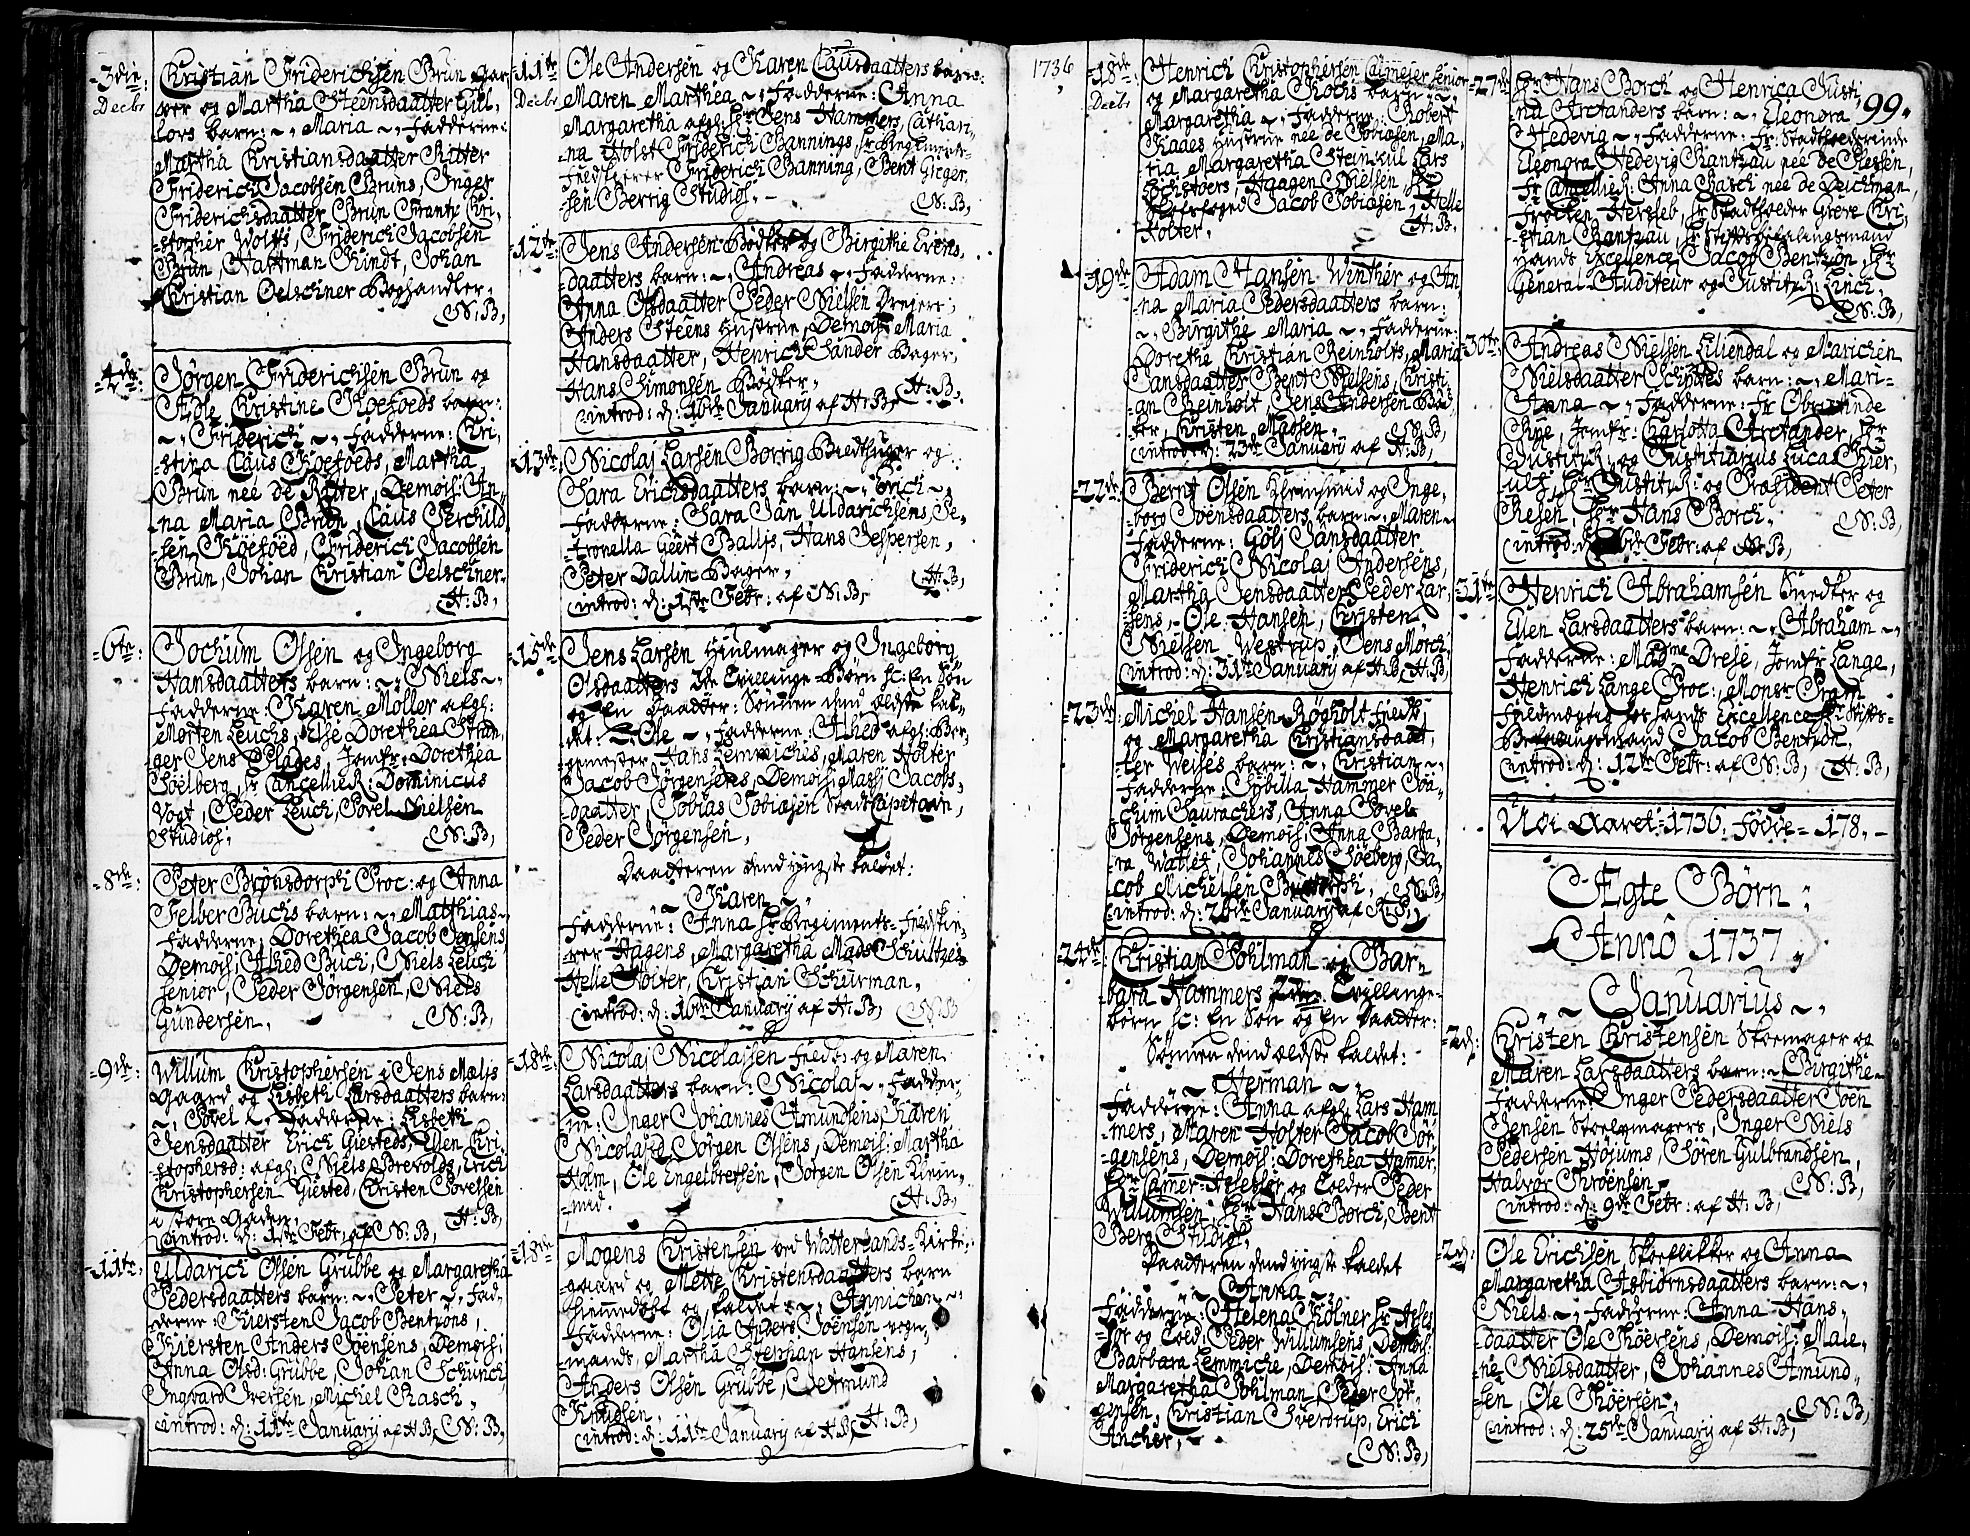 3die:
Decbr
Christian Friderichsen Brun Gar
ver og Martha Steensdaatter Gul-
lovs barn: ~, Maria ~, Fadderne:
Martha Christiansdaatter Ritter
Friderich Jacobsen Bruns, Inger
Friderichsdaatter Brun Frantz Chri,
-stopher Wolffs, Friderich Jacobsen
Brun, Hartman Kindt, Johan
Christian Oelschner Boghandler,
N: B,
4de
Jørgen Friderichsen Brun og
Adle Christine Koefoeds barn:
~, Friderich ~, Fadderne: Chri,
-stina Claus Koefoeds, Martha
Brun neé de Ritter, Demois: An,
na Maria Brun, Claus Gerchild
sen Koefoed, Friderich Jacobsen
Brun, Johan Christian Oelschner
H: B,
6te
Jochum Olsen og Ingeborg
Hansdaatters barn: ~, Niels ~,
Fadderne: Karen Moller afgl:
Morten Leuchs, Else Dorethea Stran,
ger Jens Plades, Jomfr: Dorethea
Soelberg, Hr Cancellie R: Dominicus
Vogt, Peder Leuch, Povel Nielsen
Studios:
N: B,
8de
Peter Brønsdorph Proc: og Anna
Felber Buchs barn: ~, Matthias ~,
Fadderne: Dorethea Jacob Jensens,
Demois: Alhed Buch, Niels Leuch
Senior, Peder Jørgensen, Niels
Gundersen.
N: B,
9de
Willum Christophersen i Jens Mæljs
Gaard og Lisbeth Larsdaatters barn:
~, Povel ~, Fadderne: Lisbeth
Jensdaatter Erich Giesteds, Elen Chri
-stophersd: afgl: Niels Brevolds, Erich
Christophersen Giested, Christen Povelsen
i store Gaden,
H: B,
introd: d: 1ste Febr, af N: B,
11te
Uldarich Olsen Grubbe og Margaretha
Pedersdaatters barn: ~, Peter ~, Fad-
derne: Kiersten Jacob Bentzons,
Kiersten Anders Joensens, Demois:
Anna Olsd: Grubbe, Johan Schunch
Ingvard Iversen, Michel Rasch,
introd: d: 11te January af H: B, N: B,
11te
Decbr
Ole Andersen og Karen Clausdaatters barn:
Maren Marthea ~, Fadderne: Anna
Margaretha afgl: Hr Jens Hammers, Cathari-
na Holst Friderich Bannings Hr Regiments-
Feldskerer Friderich Banning, Bent Gieger
sen Berrig Studios: –
N: B,
12te
Jens Andersen Bødker og Birgithe Evens,
daatters barn: ~, Andreas ~, Fadderne:
Anna Olsdaatter Peder Nielsen Dreyers,
Anders Steens Hustrue, Demois: Maria
Hansdaatter, Henrich Sander Bager,
Hans Simonsen Bødker,
H: B,
introd: d: 16de January af H: B,
13de
Nicolaj Larsen Borrig Bredthuger og
Sara Erichsdaatters barn: ~, Erich ~,
Fadderne: Sara Jan Uldarichsens, Pe-
tronella Geert Balljs, Hans Jespersen,
Peter Dallin Bager,
H: B,
introd: d: 1ste Febr: af N: B,
15de
Jens Larsen Hiulmager og Ingeborg
Olsdaatters 2de Tvillinge-Børn sc: En Søn
og En Daatter: Sønnen dend ældste kal-
det: ~, Ole ~, Fadderne: Alhed afgl: Ber,
gmester Hans Emmichus, Maren Holter
Jacob Jørgensens, Demois: Massi Jacobs,
daatter, Tobias Tobiasen Stadt Capitain,
Peder Jørgensen,
Daatteren dend yngste kaldet:
~, Karen ~,
Fadderne: Anna Hr Regiments-Feldskie,
rer Hagens, Margaretha Mads Schultzes
Helle Holter, Christian Schurman,
introd: d: 16de January af H: B, N: B
18de
Nicolaj Nicolaisen Feldb: og Maren
Larsdaatters barn: Nicolaj ~, Fadder-
ne: Inger Johannes Amundsens, Karen
Nicolaisd Jørgen Olsens, Demois: Martha
Holm, Ole Engelbretsen, Jørgen Olsen Klein-
smid.
H: B,
18de
Mogens Christensen ved Watterlands-Kirke-
gaard og Mette Christensdaatters barn
hiemmedøbt og kaldet: ~, Annichen ~,
Fadderne: Olia Anders Joensen vogn-
mands, Martha Stephan Hansens,
Anders Olsen Grubbe, Gietmund
Knudsen,
introd: d: 11te January af H: B, H: B,
1736
18de
Decbr
Henrich Christophersen Calmeier Senior
og Margaretha Rochs barn: ~,
Margaretha ~, Fadderne: Robert
Raaes Hustrue neé de Tobiasen, Ma-
ria Margaretha Steinkul Lars
Sochstoers, Haagen Nielsen, Hr
Skofsfoged Jacob Tobiasen, Helle
Holter,
H: B,
19de
Adam Hansen Winther og An,
na Maria Pedersdaatters barn:
~, Birgithe Maria ~, Fadderne:
Dorethe Christian Reinholts, Maria
Jansdaatter Bent Nielsens, Christi-
an Reinholt Jens Andersen Bød
ker, Christen Madsen,
N: B,
introd: d: 23de January af H: B,
22de
Bernt Olsen Kleinsmid og Inge,
borg Joensdaatters barn: ~, Maren ~
Fadderne: Golj Jansdaatter
Friderich Nicolaj Andersens,
Martha Jensdaatter Peder Lar,
sens, Ole Hansen, Christen
Nielsen Westrup, Jens Morch
introd: d: 31te January af H: B, H: B,
23de
Michel Hansen Røgholt Feldb:
og Margaretha Christiansdaat,
ter Weises barn: ~, Christian ~,
Fadderne: Sybilla Hammer Joa-
chum Laurachers, Anna Povel
Jørgensens, Demois: Anna Barba,
ra Walter, Johannes Soeberg, Ja-
cob Michelsen
N: B,
introd: d: 26de January af H: B,
24de
Christian Pohlman og Bar-
bara Hammers 2de Tvillinge-
børn sc: En Søn og En Daatter:
Sønnen dend ældste kaldet:
~, Herman ~,
Fadderne: Anna afgl: Lars Ham,
mers, Maren Holter Jacob Jør,
gensens, Demois: Dorethea Hamer,
Hr Camer-Assessor og Tolder Peder
Willumsen, Hr Hans Borch, Bent
Berg Studios,
Daatteren dend yngste kaldet
~, Anna ~,
Fadderne: Helena Kølner Hr Asses
sor og Told: Peder Willumsens, Demois:
Barbara Lemmiche, Demois: Anna
Margaretha Pohlman, Peder Jør-
gensen, Christian Sverdrup, Erich
Ancher,
N: B,
99.
27de
Hr Hans Borch og Henrica Justi,
na Arctanders barn: ~, Eleonora
Hedevig ~, Fadderne: Fr Stadtholderinde
Eleonora Hedevig Rantzau neé de Plessen,
Fr Cancellie R: Anna Rasch neé de Deichman,
Frøiken Hersleb, Hr Stadtholder Greve Chri,
stian Rantzau, Hr Stiftsbefalingsmand
hands Excellence Jacob Bentzon, Hr
General-Auditeur og Justitz R: Finch,
N: B,
30te
Andreas Nielsen Liliendal og Marichen
Nielsdaatter Schydes barn: ~, Mari-
Anna ~, Fadderne: Fr Obristinde
Rye, Jomfr: Charlotta Arctander, Hr
Justitz R: og Justitiarius Lucas Kier,
ulf, Hr Justitz R: og Præsident Peter
Resen, Hr Hans Borch,
N: B,
introd: d: Febr: af H: B,
31te
Henrich Abrahamsen Snedker og
Elen Larsdaatters barn: ~, Abraham ~,
Fadderne: Madme Drese, Jomfr Lange,
Henrich Lange Proc:, Monsr Pram
Fuldmægtig hos hands Excellence Hr Stifts-
Befalingsmand Jacob Bentzon,
introd: d: 12te Febr: af N: B, H: B,
Udi Aaret = 1736. Fødde = 178. –
Ægte Børn:
Annô 1737,
~ Januarius ~,
2d:
Christen Christensen Skoemager og
Maren Larsdaatters barn: ~, Birgithe ~
Fadderne: Inger Pedersdaatter Joen
Jensen Stoelmagers, Inger Niels
Pedersen Højums, Søren Gulbrandsen,
Halvor Thrønsen,
N: B,
introd: d: 9de Febr: af H: B,
2d:
Ole Erichsen Skoeflikker og Anna
Margaretha Asbiørnsdaatters barn: ~,
Niels ~, Fadderne: Anna Hans-
daatter Ole Thoersens, Demois: Male-
ne Nielsdaatter, Johannes Amund-
sen, Ole Thoersen,
N: B,
introd: d: 25de January af H: B,